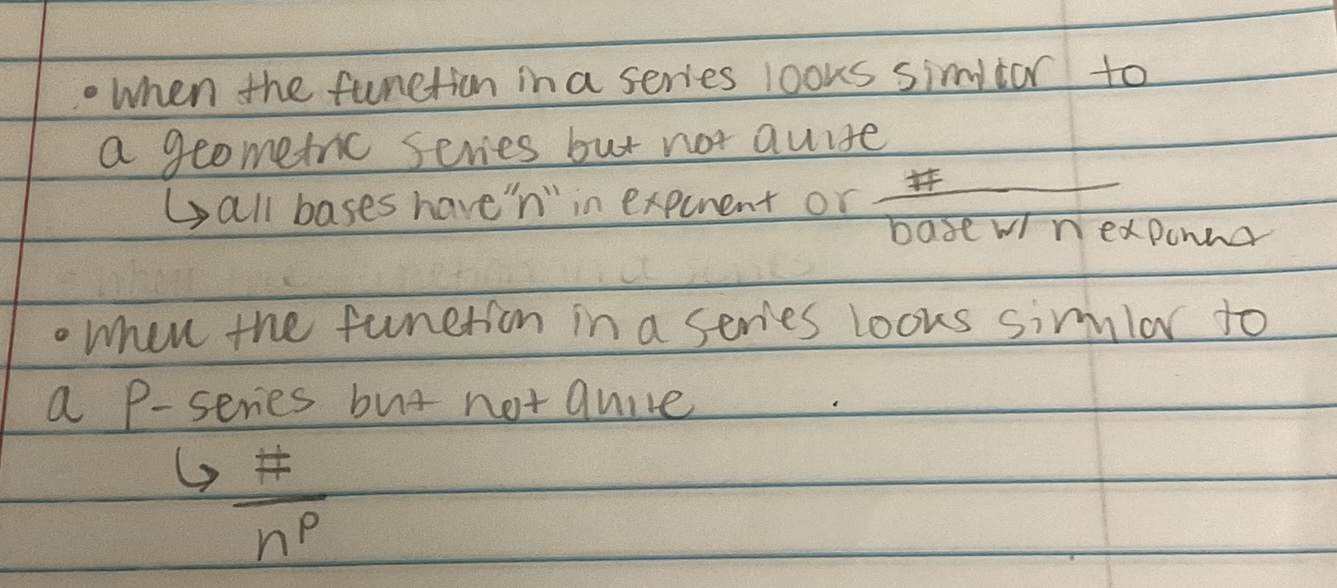 • when the function in a series looks similar to
a geometric series but not quite
↳ all bases have "n" in exponent or #
base w/ n exponent
• when the function in a series looks similar to
a P-series but not quite
↳ #
n^p